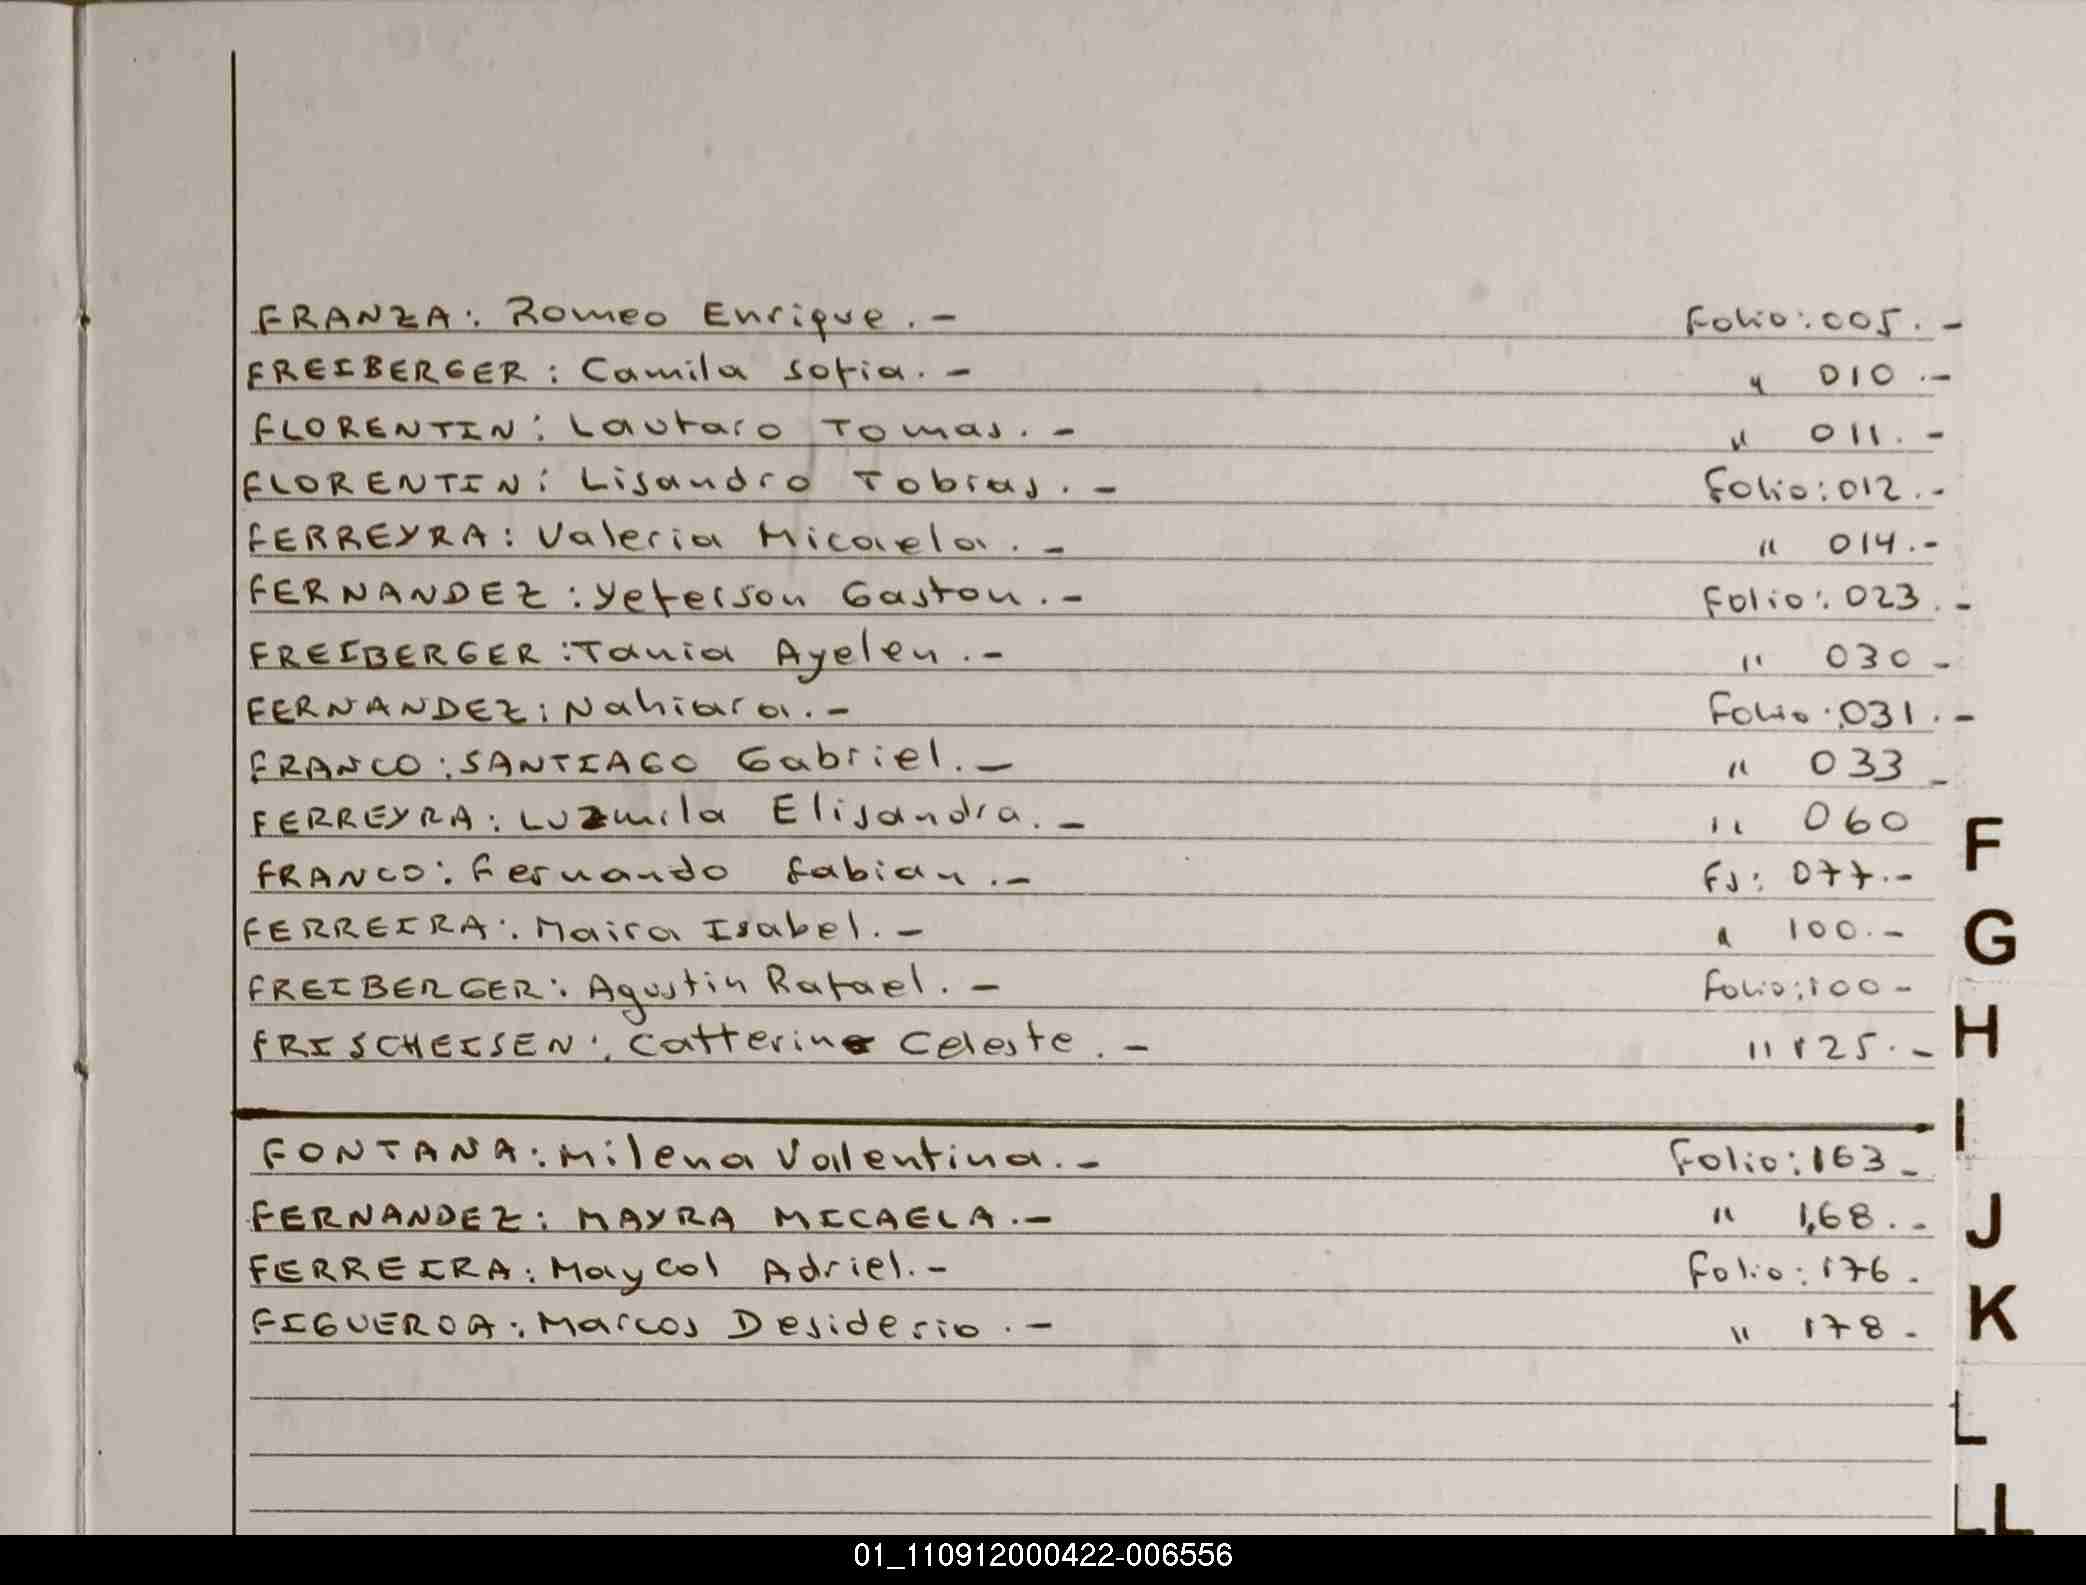 FRANZA: Romeo Enrique.- Folio:005.-
FREIBERGER: Camila Sofia.- " 010.-
FLORENTIN: Lautaro Tomas.- " 011.-
FLORENTIN: Lisandro Tobias.- Folio:012.-
FERREYRA: Valeria Micaela.- " 014.-
FERNANDEZ: Yeferson Gaston.- Folio: 023.-
FREIBERGER: Tania Ayelen.- " 030-
FERNANDEZ: Nahiara.- Folio:031.-
FRANCO: SANTIAGO Gabriel.- " 033-
FERREYRA: Luzmila Elisandra.- " 060
FRANCO: Fernando Fabian.- Fs: 077.-
FERREIRA: Maira Isabel.- " 100.-
FREIBERGER: Agustin Rafael.- Folio:100-
FRISCHEISEN: Catterine Celeste.- " 125.-
FONTANA: Milena Valentina.- Folio:163-
FERNANDEZ: MAYRA MICAELA.- " 168.-
FERREIRA: Maycol Adriel.- Folio:176.
FIGUEROA: Marcos Desiderio.- " 178-
F
G
H
I
J
K
L
LL
01_110912000422-006556